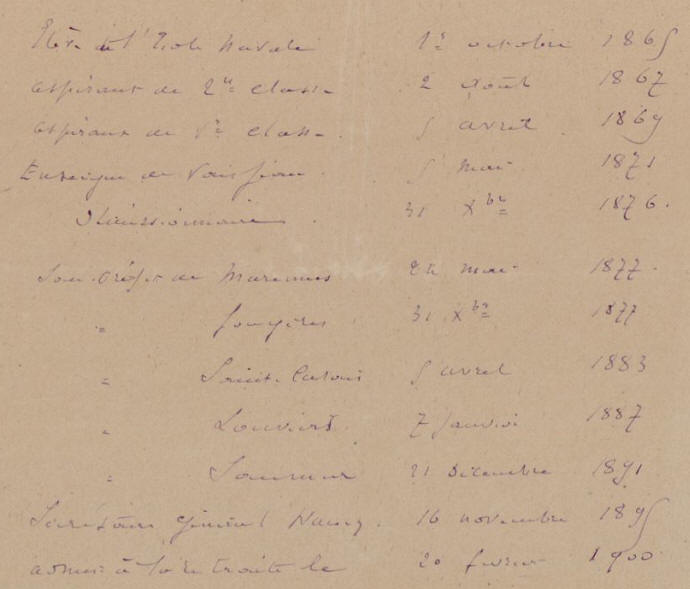 Elève de l'Ecole Navale 1er octobre 1865
aspirant de 2e classe 2 août 1867
aspirant de 1re classe 5 avril 1869
Enseigne de Vaisseau 5 mai 1871
Démissionnaire 31 Xbre 1876.
Sous-Préfet de Marennes 24 mai 1877.
" Fougères 31 Xbre 1877
" Saint-Calais 5 avril 1883
" Louviers 7 Janvier 1887
" Saumur 21 Décembre 1891
Secrétaire Général Nancy. 16 novembre 1895
admis à la retraite le 20 février 1900